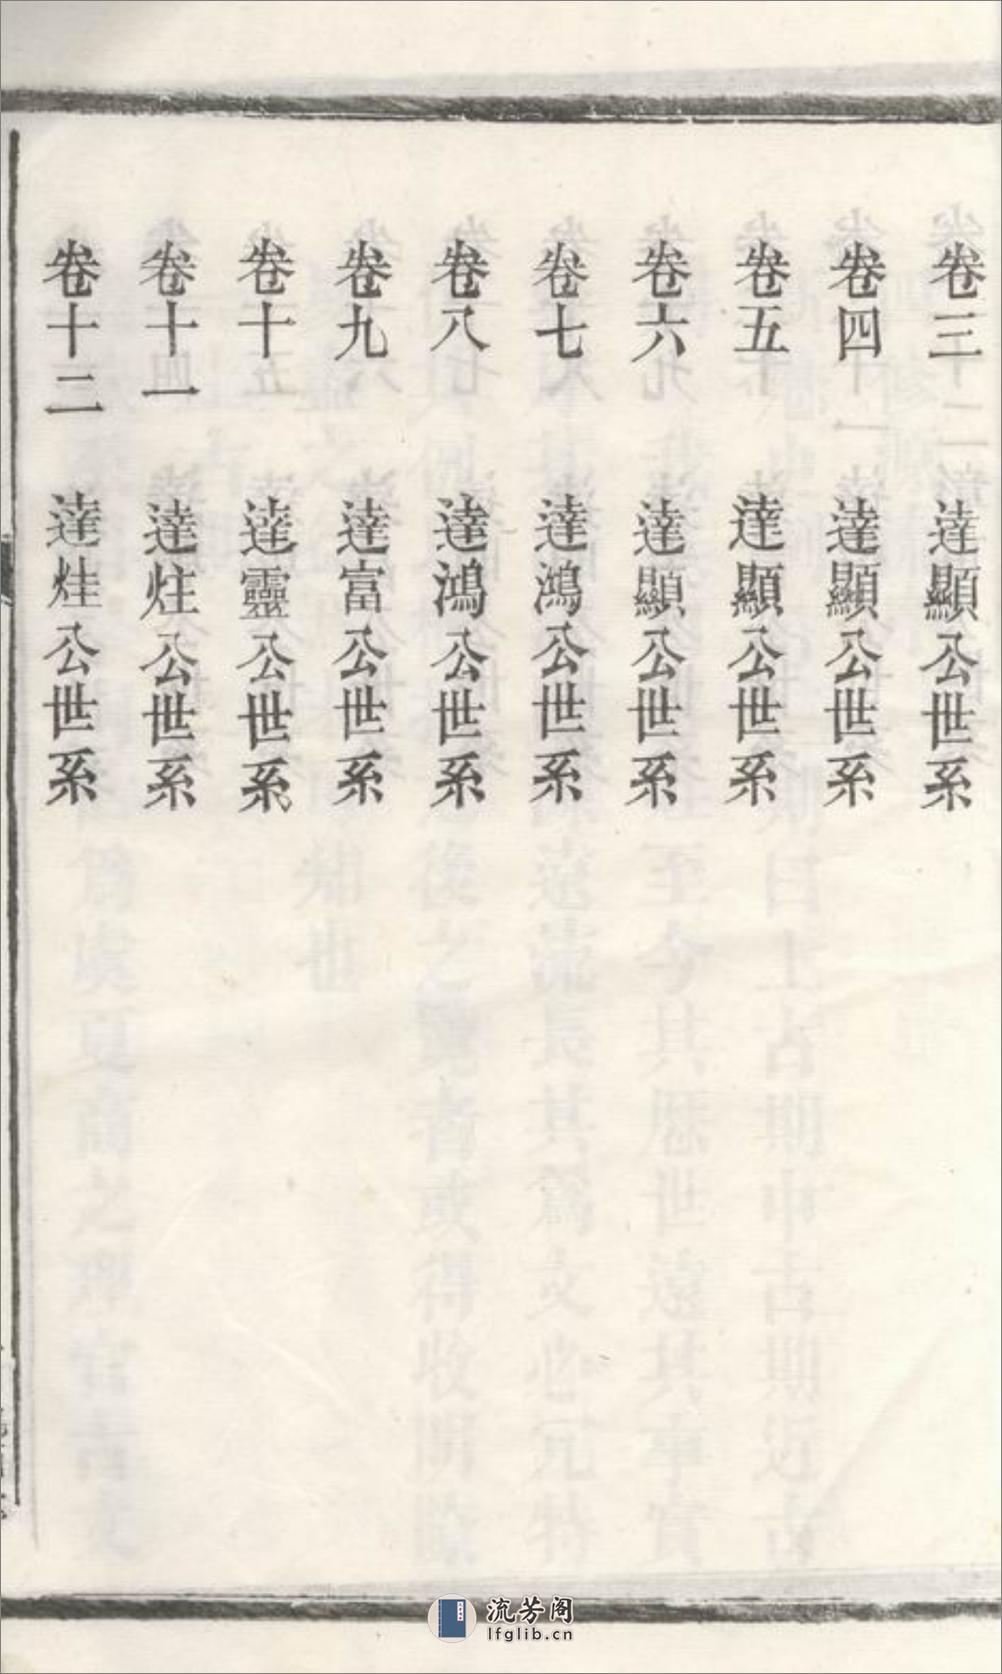 卷三 達顯公世系
卷四 達顯公世系
卷五 達顯公世系
卷六 達顯公世系
卷七 達鴻公世系
卷八 達鴻公世系
卷九 達富公世系
卷十 達靈公世系
卷十一 達炷公世系
卷十二 達烓公世系
流芳阁
lfglib.cn